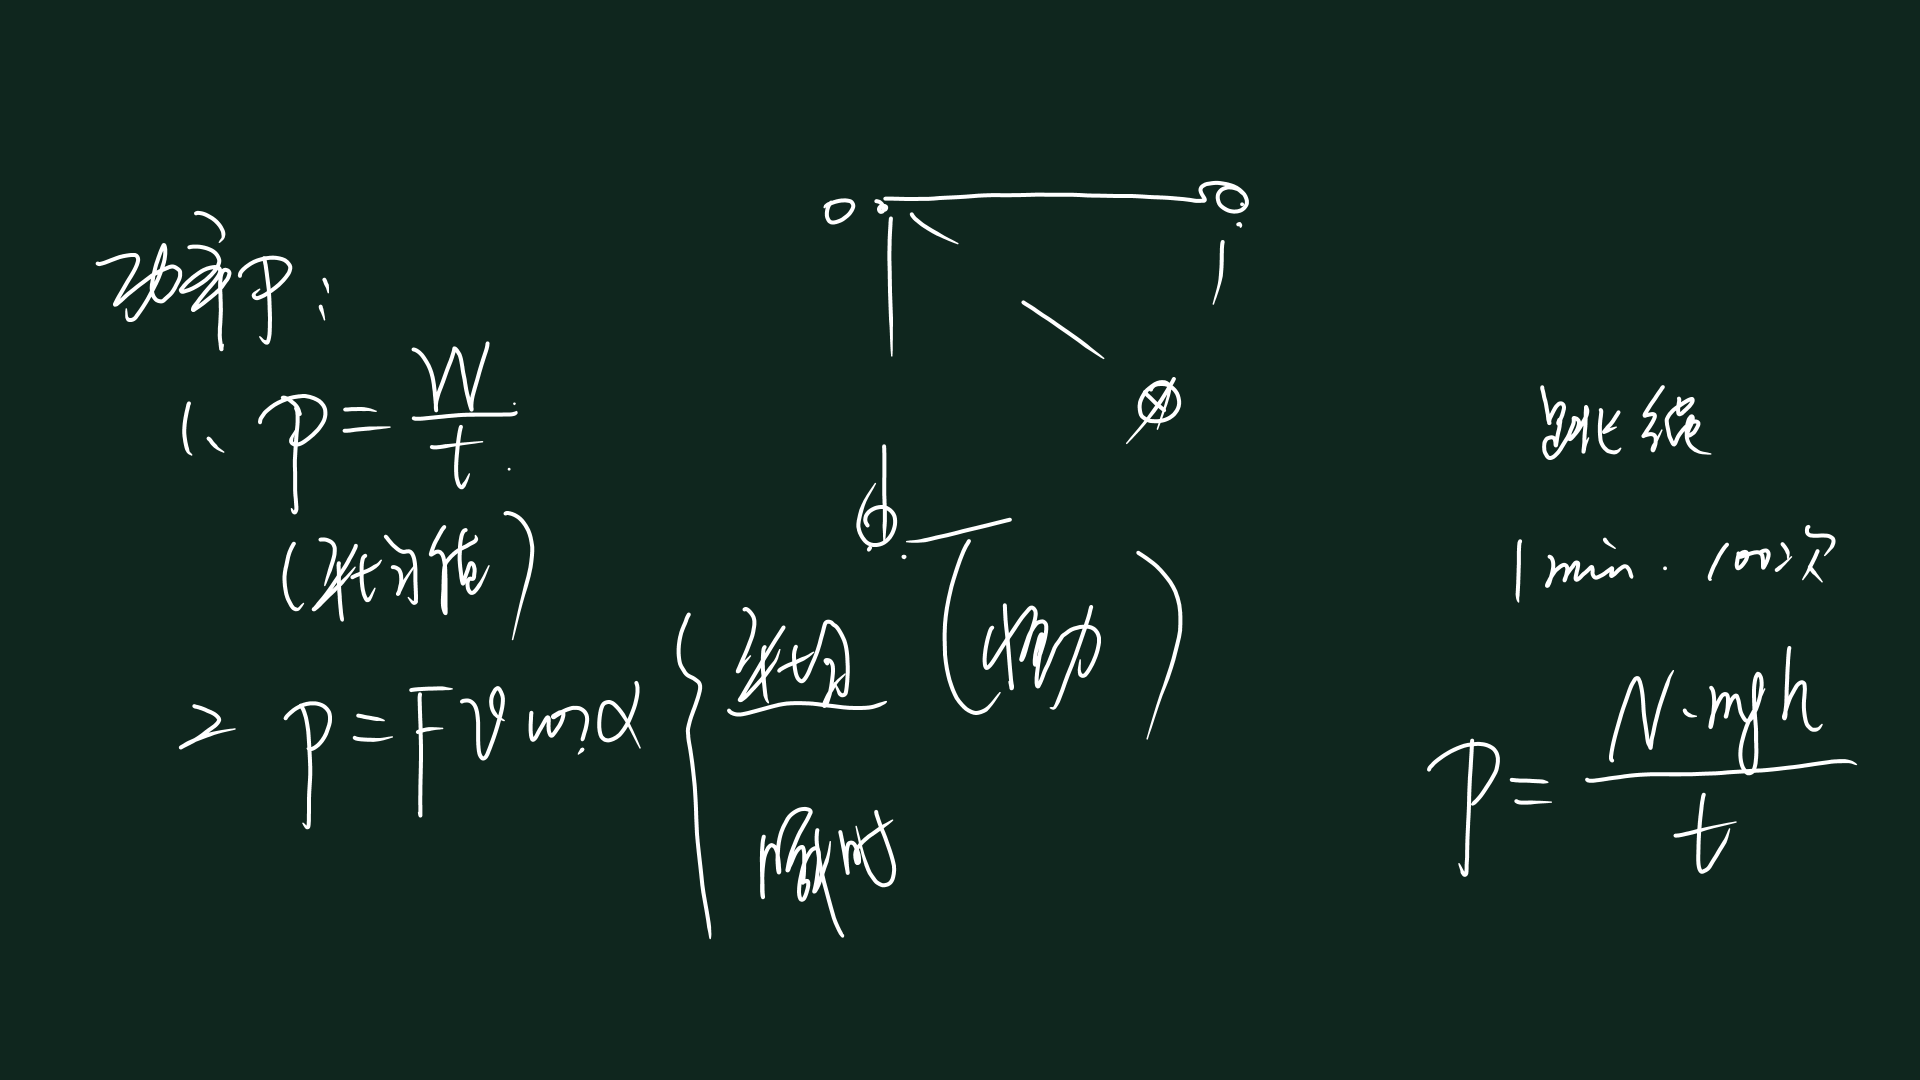 功率P:
1、P=W/t
(平均值)
2 P=Fvcosα { 平均 (恒力)
瞬时
O
跳绳
1min. 100次
P=N·mgh/t